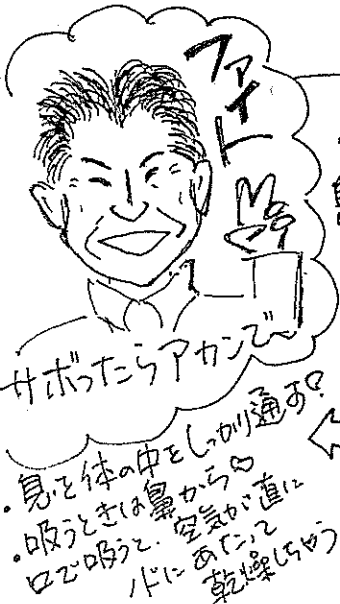 ファイト
サボったらアカンで〜
・息を体の中をしっかり通す♡
・吸うときは鼻から♡
口で吸うと、空気が直に
ノドにあたって
乾燥しちゃう